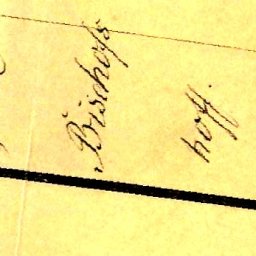 Bischofs
hoff.